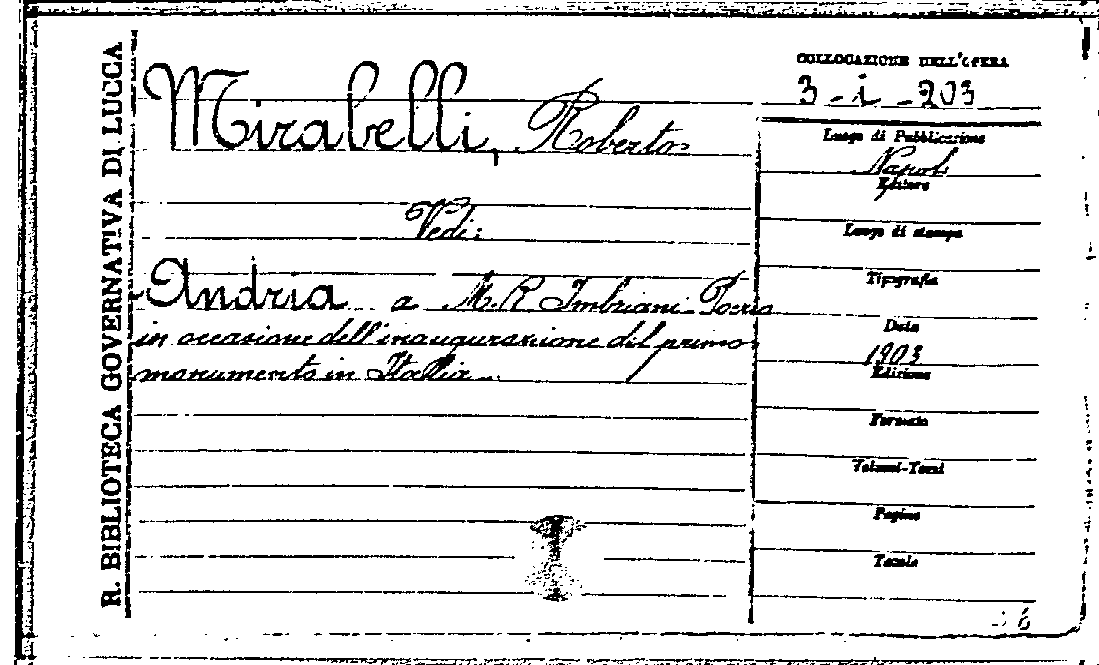 R. BIBLIOTECA GOVERNATIVA DI LUCCA
Mirabelli, Roberto
Vedi:
Andria a M. R. Imbriani-Poerio
in occasione dell'inaugurazione del primo
monumento in Italia.
COLLOCAZIONE DELL'OPERA
3-i-203
Luogo di Pubblicazione
Napoli
Editore
Luogo di stampa
Tipografia
Data
1903
Edizione
Formato
Volumi-Tomi
Pagine
Tavole